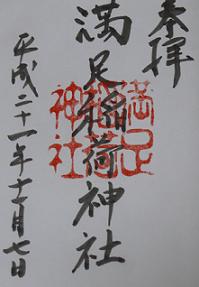 奉拝
満足稲荷神社
満足
稲荷
神社
平成二十一年十一月七日